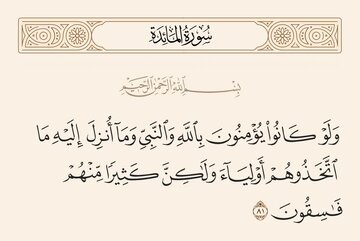 سُورَةُ المَائِدَةِ
بِسْمِ ٱللَّهِ ٱلرَّحْمَٰنِ ٱلرَّحِيمِ
وَلَوْ كَانُوا۟ يُؤْمِنُونَ بِٱللَّهِ وَٱلنَّبِىِّ وَمَآ أُنزِلَ إِلَيْهِ مَا
ٱتَّخَذُوهُمْ أَوْلِيَآءَ وَلَٰكِنَّ كَثِيرًا مِّنْهُمْ
فَٰسِقُونَ ٨١